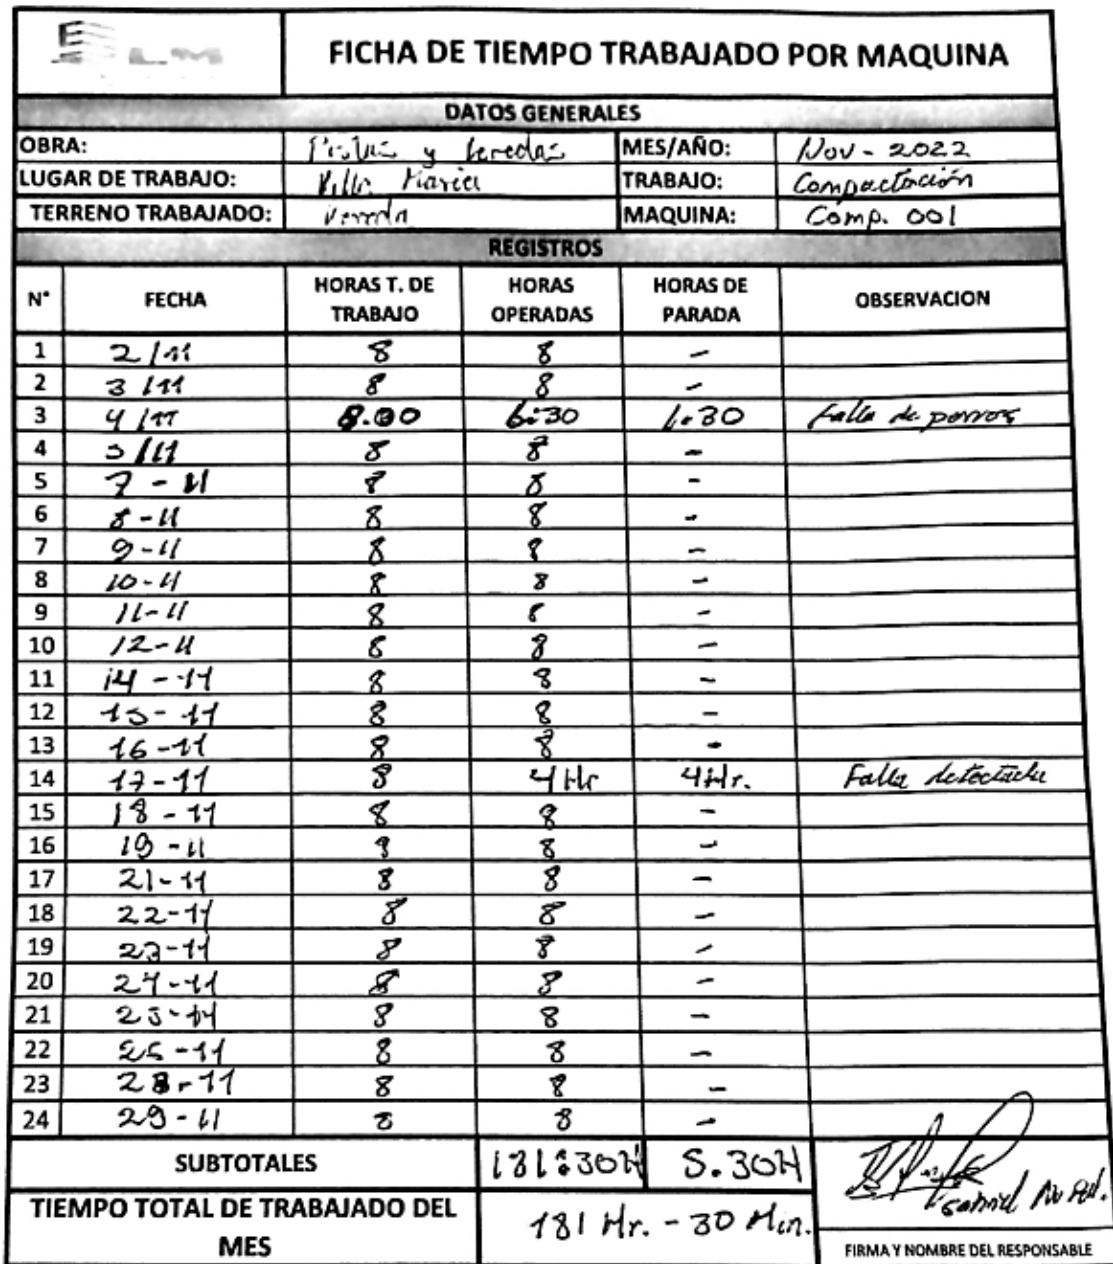 LM
FICHA DE TIEMPO TRABAJADO POR MAQUINA
DATOS GENERALES
OBRA: Pistas y Veredas MES/AÑO: Nov - 2022
LUGAR DE TRABAJO: Villa Maria TRABAJO: Compactación
TERRENO TRABAJADO: Vereda MAQUINA: Comp. 001
REGISTROS
N° FECHA HORAS T. DE TRABAJO HORAS OPERADAS HORAS DE PARADA OBSERVACION
1 2/11 8 8 -
2 3/11 8 8 -
3 4/11 8.00 6:30 1.30 Falla de
4 5/11 8 8 -
5 7-11 8 8 -
6 8-11 8 8 -
7 9-11 8 8 -
8 10-11 8 8 -
9 11-11 8 8 -
10 12-11 8 8 -
11 14-11 8 8 -
12 15-11 8 8 -
13 16-11 8 8 -
14 17-11 8 4Hr 4Hr. Falla detectada
15 18-11 8 8 -
16 19-11 8 8 -
17 21-11 8 8 -
18 22-11 8 8 -
19 23-11 8 8 -
20 24-11 8 8 -
21 25-11 8 8 -
22 26-11 8 8 -
23 28-11 8 8 -
24 29-11 8 8 -
SUBTOTALES 181:30H 5.30H
TIEMPO TOTAL DE TRABAJADO DEL MES 181 Hr. - 30 Min.
FIRMA Y NOMBRE DEL RESPONSABLE